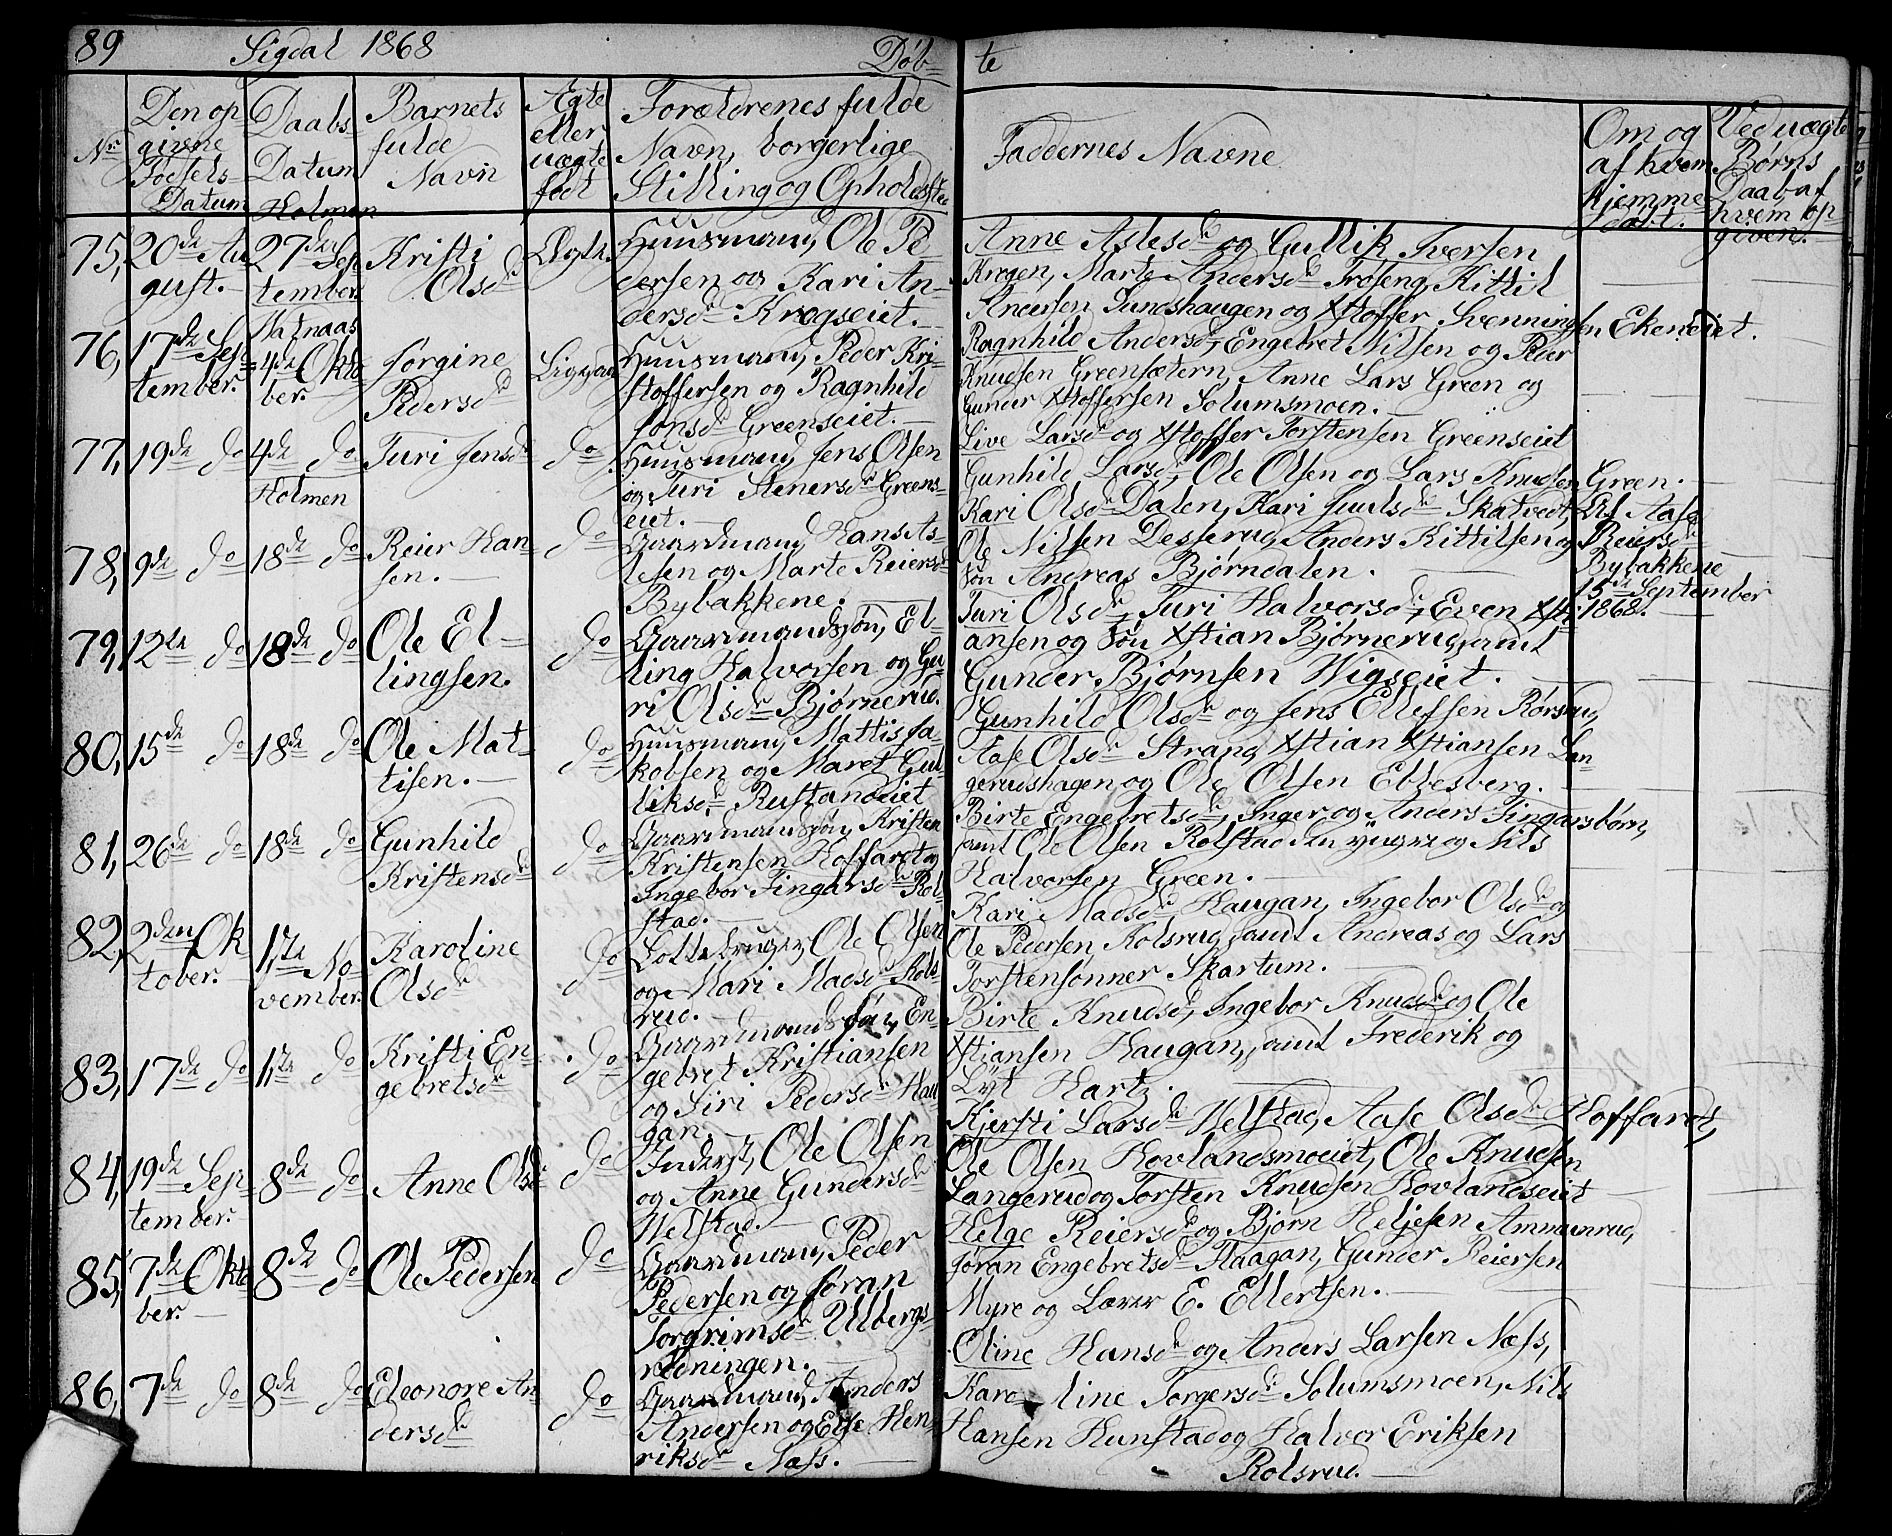 89 Sigdal 1868 Døb= te
Nr.
Den op
givne
Fødsels-
Datum
Daabs
Datum
Holmen
Barnets
fulde
Navn
Ægte
eller
uægte
født
Forældrenes fulde
Navn, borgerlige
Stilling og Opholdssted
Faddernes Navne
Om og
af hvem
hjemme-
døbt.
Ved uægte
Børns
Daab af
hvem op
given.
75, 20de Au
gust.
27de Sep
tember.
Kristi
Olsdr
Ægte.
Huusmand, Ole Pe
dersen og Kari An-
dersdr Krogseiet.
Anne Aslesdr og Gullik Iversen
Krogen, Marte Andersdr Froseng, Kittil
Andersen Sundshaugen og Xstoffer Svenningsen Ekeneiet.
76, 17de Sep
tember.
Natnaas
4de Okto
ber.
Jørgine
Pedersdr
Huusmand, Peder Kri-
stoffersen og Ragnhild
Jonsdr Greenseiet.
Ragnhild Andersdr, Engebret Nilsen og Peder
Knudsen Greensætern, Anne Lars Green og
Gunder Xstoffersen Solumsmoen.
77, 19de do
4de do
Holmen
Turi Jensdr
do
Huusmand, Jens Olsen
og Turi Stenersdr Greens-
eiet.
Live Larsdr og Xstoffer Torstensen Greenseiet
Gunhild Larsdr, Ole Olsen og Lars Knudsen Green.
78, 9de do
18de do
Reier Han-
sen.
do
Gaardmand, Hans As-
lesen og Marte Reiersdr
Bybakkene.
Kari Olsdr Dalen, Kari Juulsdr Skatvedt,
Ole Nilsen Desserud, Anders Kittilsen og
Søn Andreas Bjørndalen.
Af Aase
Reiersdr
Bybakkene
15de September
1868.
79, 12te do
18de do
Ole El-
lingsen.
do
Gaardmandssøn, El-
ling Halvorsen og Gu-
ri Olsdr Bjørnerud.
Turi Olsdr, Turi Halvorsdr, Even Xsti
ansen og Søn Xstian Bjørnerud, samt
Gunder Bjørnsen Wigseiet.
80, 15de do
18de do
Ole Mat-
tisen.
do
Huusmand, Mattis Ja-
kobsen og Maret Gul-
liksdr Rustandeiet
Gunhild Olsdr og Jens Ellefsen Rørsrud,
Aase Olsdr Strand, Xstian Xstiansen Lan-
gerudshagen og Ole Olsen Ebbesberg.
81, 26de do
18de do
Gunhild
Kristensdr
do
Gaardmandssøn, Kristen
Kristensen Hoffart og
Ingebor Fingarsdr Rol-
stad.
Birte Engebretsdr, Inger og Anders Fingarsbørn,
samt Ole Olsen Rolstad den yngre og Nils
Halvorsen Green.
82, 2den Ok
tober.
1ste No
vember.
Karoline
Olsdr
do
Lottebruger, Ole Olsen
og Mari Madsdr Kols-
rud.
Kari Madsdr Haugan, Ingebor Olsdr og
Ole Pedersen Kolsrud, samt Andreas og Lars
Torstensønner Skartum.
83, 17de do
1ste do
Kristi En-
gebretsdr
do
Gaardmands søn, En-
gebret Kristiansen
og Siri Pedersdr Hau
gan.
Birte Knudsdr, Ingebor Knudsdr og Ole
Xstiansen Haugan, samt Frederik og
Hartz.
84, 19de Sep-
tember.
8de do
Anne Olsdr
do
Inderst, Ole Olsen
og Anne Gundersdr
Welstad.
Kjersti Larsdr Welstad, Aase Olsdr Hoffardt,
Ole Olsen Hovlandsmoeiet, Ole Knudsen
Langerud og Torsten Knudsen Hovlandseiet
85, 7de Okto
ber.
8de do
Ole Pedersen
do
Gaardmand, Peder
Pedersen og Jøran
Torgrimsdr Ulbergs-
redningen.
Helge Reiersdr og Bjørn Heljesen Ammunrud,
Jøran Engebretsdr Flaagan, Gunder Reiersen
Myre og Lærer E. Ellertsen.
86, 7de do
8de do
Eleonore An
dersdr
do
Gaardmand, Anders
Andersen og Else Hen-
riksdr Næss.
Oline Hansdr og Anders Larsen Næss,
Karo line Torgersdr Solumsmoen, Nils
Hansen Hunstad og Halvor Eriksen
Rolsrud.